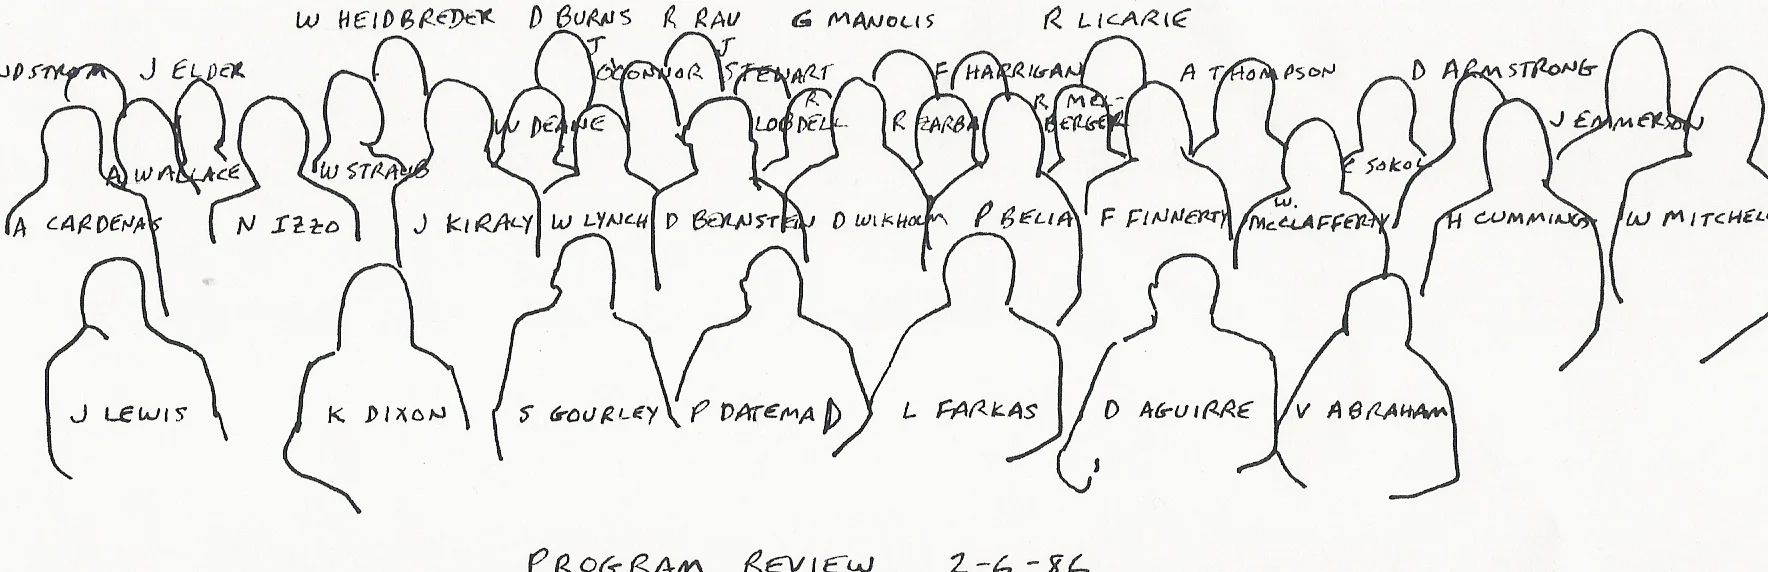 W HEIDBREDER D BURNS R RAU G MANOLIS R LICARIE
NDSTROM J ELDER J O'CONNOR J STEWART F HARRIGAN A THOMPSON D ARMSTRONG
W DEANE R LOBDELL R ZARBA R MEL-
BERGER J EMMERSON
A WALLACE W STRAUB E SOKOL
A CARDENAS N IZZO J KIRALY W LYNCH D BERNSTEIN D WIKHOLM P BELIA F FINNERTY W. MCCLAFFERTY H CUMMINGS W MITCHEL
J LEWIS K DIXON S GOURLEY P DATEMA L FARKAS D AGUIRRE V ABRAHAM
PROGRAM REVIEW 2-6-86